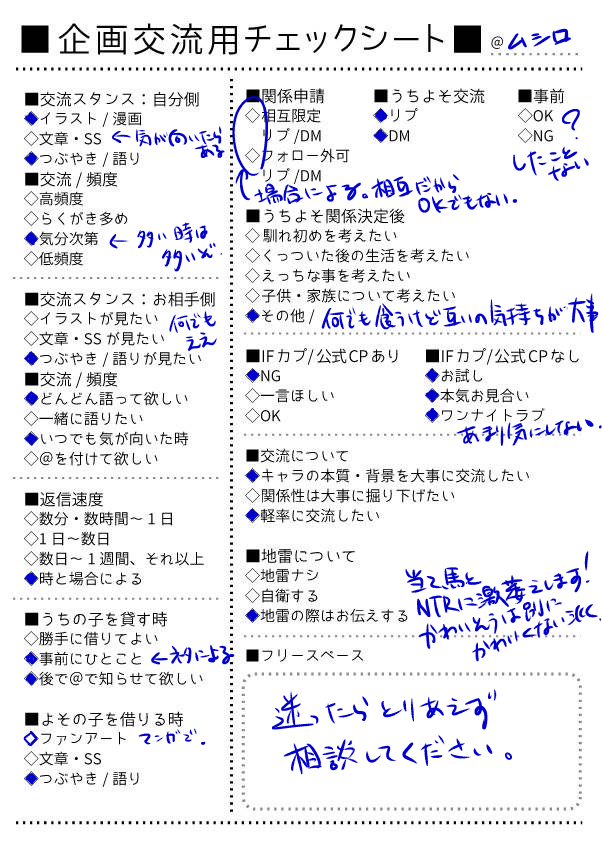 ■企画交流用チェックシート■ @ムシロ
■交流スタンス：自分側
◆イラスト/漫画
◇文章・SS ←気が向いたら
ある
◆つぶやき/語り
■交流/頻度
◇高頻度
◇らくがき多め
◆気分次第 ←多い時は
多いぞ
◇低頻度
■交流スタンス：お相手側
◇イラストが見たい 何でも
◇文章・SSが見たい ええ
◆つぶやき/語りが見たい
■交流/頻度
◆どんどん語って欲しい
◇一緒に語りたい
◆いつでも気が向いた時
◇@を付けて欲しい
■返信速度
◇数分・数時間～１日
◇1日～数日
◇数日～１週間、それ以上
◆時と場合による
■うちの子を貸す時
◇勝手に借りてよい
◆事前にひとこと ←ネタによる
◆後で@で知らせて欲しい
■よその子を借りる時
◇ファンアート マンガで.
◇文章・SS
◆つぶやき/語り
■関係申請
◇相互限定
リプ/DM
◇フォロー外可
リプ/DM
↑場合による。相互だから
OKでもない.
■うちよそ交流
◆リプ
◆DM
■事前
◇OK ?
◇NG
したこと
ない
■うちよそ関係決定後
◇馴れ初めを考えたい
◇くっついた後の生活を考えたい
◇えっちな事を考えたい
◇子供・家族について考えたい
◆その他/何でも食うけど互いの気持ちが大事
■IFカプ/公式CPあり
◆NG
◇一言ほしい
◇OK
■IFカプ/公式CPなし
◆お試し
◆本気お見合い
◆ワンナイトラブ
あまり気にしない.
■交流について
◆キャラの本質・背景を大事に交流したい
◇関係性は大事に掘り下げたい
◆軽率に交流したい
■地雷について
◇地雷ナシ
◇自衛する
◆地雷の際はお伝えする
当て馬と
NTRに激萎えします!
かわいそうは別に
かわいくない
■フリースペース
迷ったらとりあえず
相談してください。